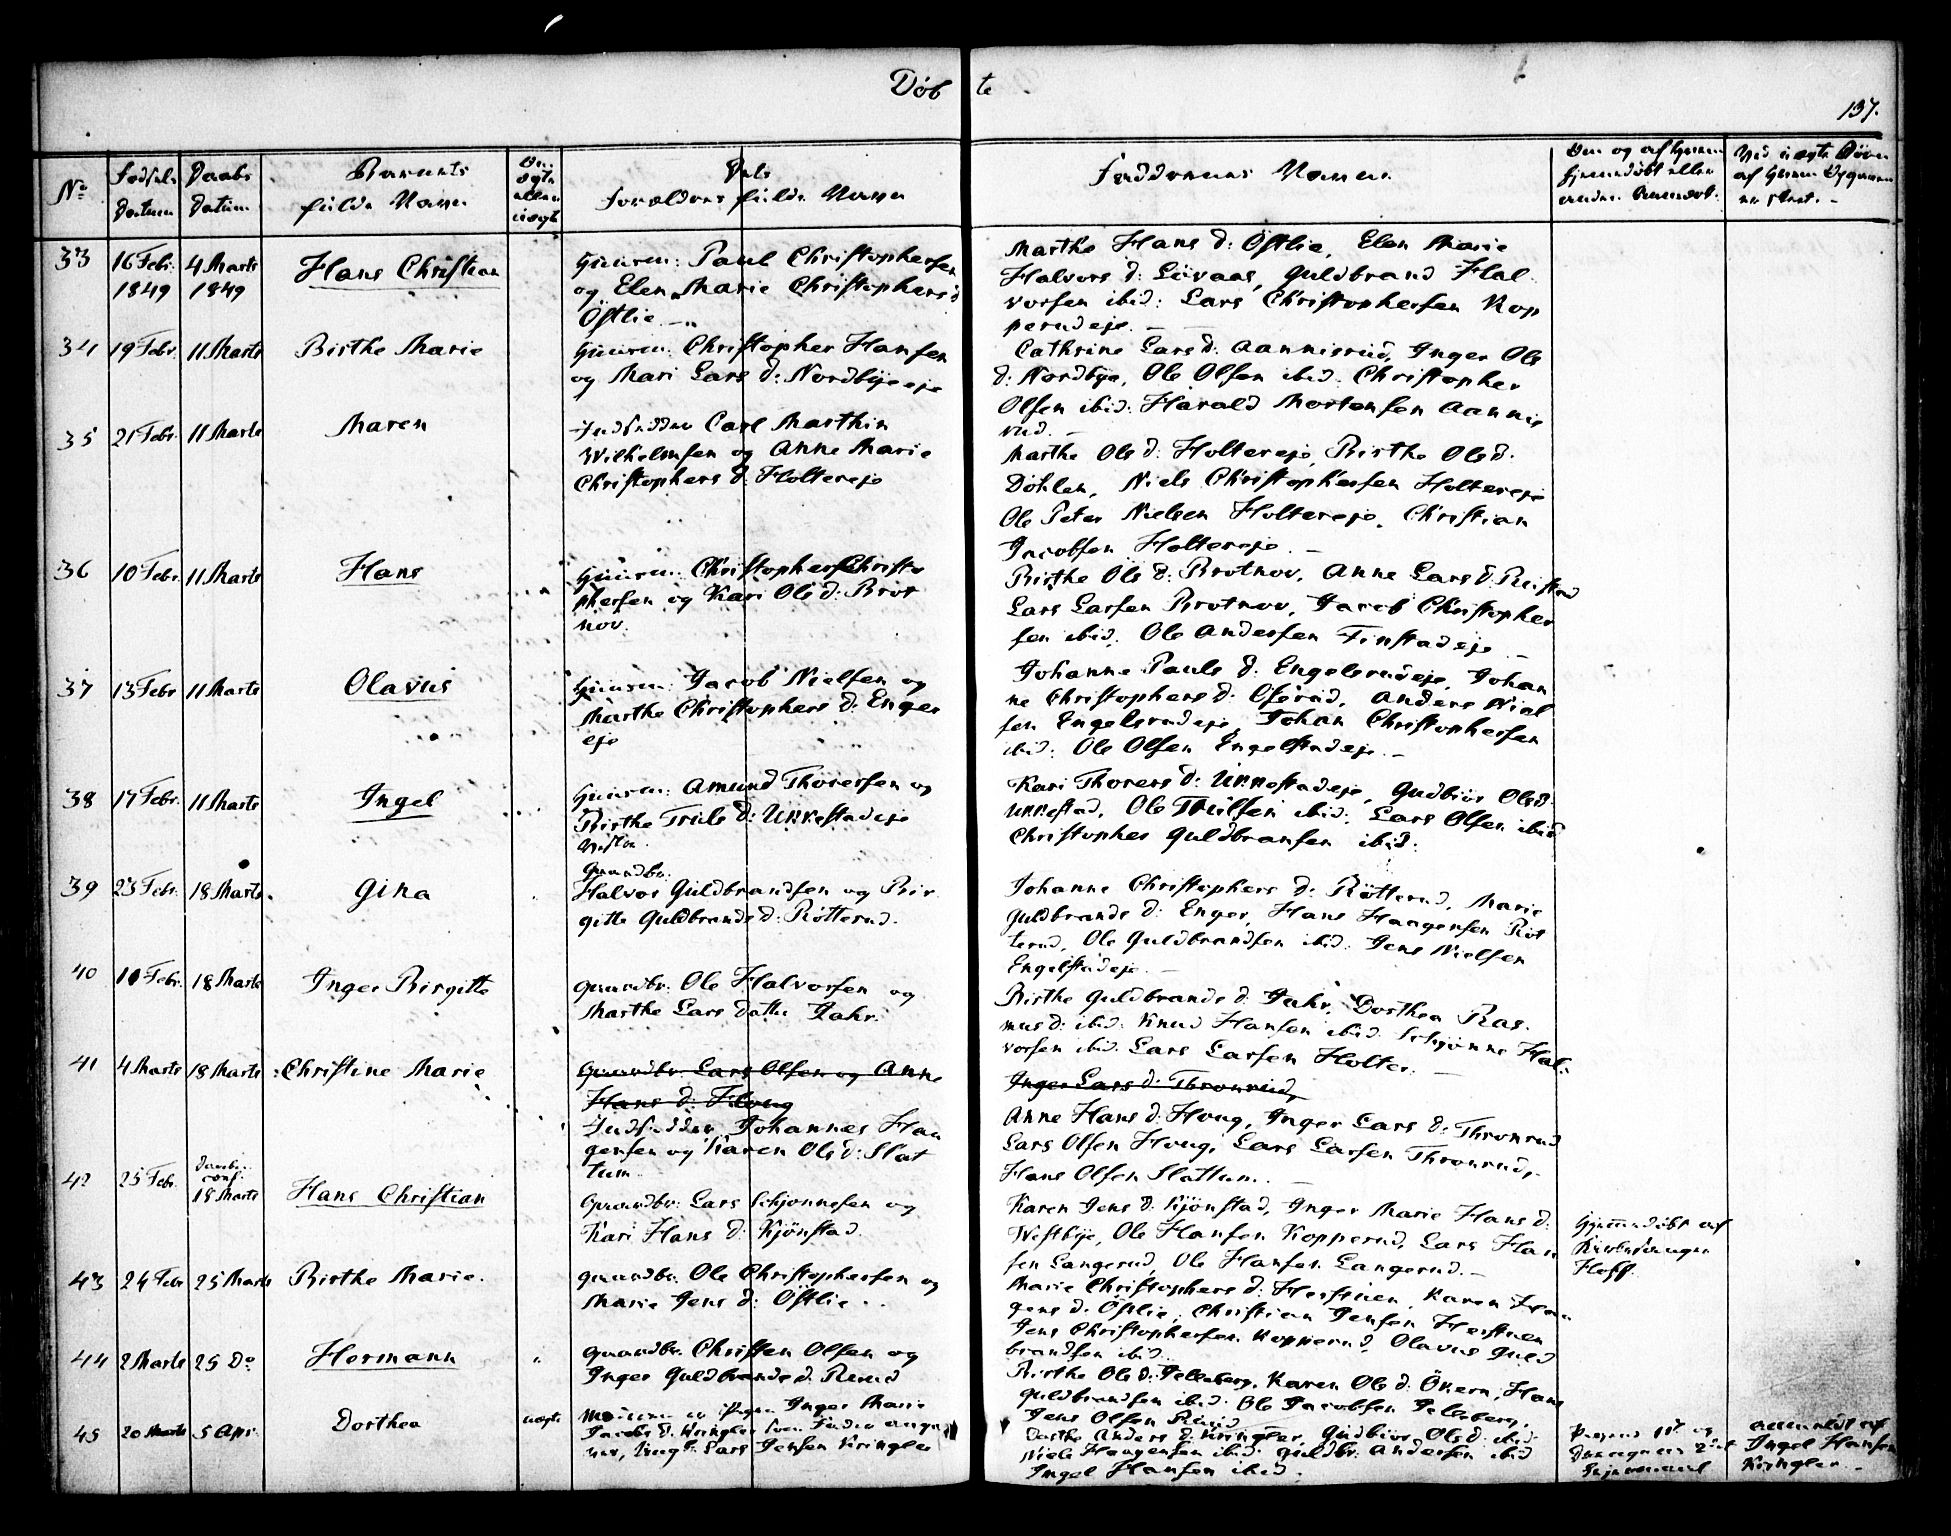 Døbte
137.
No
Fødsels Datum
Daabs Datum
Barnets fulde Navn
Om ægte eller uægte
Dets Forældres fulde Navn
Faddernes Navne
Om og af hvem hjemmedøbt eller anden Anmærk.
Ved uægte Børn af hvem Opgaven er skeet. -
33 16 Febr. 1849 4 Marts 1849 Hans Christian
Huusm: Paul Christophersen
og Elen Marie Christophersd
Östlie. -
Marthe Hans d: Östlie, Elen Marie
Halvors d: Lövaas, Guldbrand Hal
vorsen ibid: Lars Christophersen Kop
perudeje. -
34 19 Febr. 11 Marts Birthe Marie
Huusm: Christopher Hansen
og Mari Lars d: Nordbyeeje
Cathrine Lars d: Aannisrud, Inger Ols
d: Nordbye, Ole Olsen ibid: Christopher
Olsen ibid: Harald Mortensen Aannis
rud. -
35 21 Febr. 11 Marts Maren
Indsidder Carl Marthin
Wilhelmsen og Anne Marie
Christophers d: Holtereje
Marthe Ols d: Holtereje, Birthe Ols d.
Döhlen, Niels Christophersen Holtereje
Ole Peter Nielsen Holtereje, Christian
Jacobsen Holtereje. -
36 10 Febr. 11 Marts Hans
Huusm: Christophers Christo
phersen og Kari Ols d: Brot
nov.
Birthe Ols d: Brotnov, Anne Lars d: Reistad
Lars Larsen Brotnov, Jacob Christopher
sen ibid: Ole Andersen Finstadeje -
37 13 Febr 11 Marts Olavus
Huusm: Jacob Nielsen og
Marthe Christophers d: Enger
eje
Johanne Pauls d: Engelsrudeje, Johan
ne Christophers d: Oserud, Anders Niel
sen Engelsrudeje, Johan Christophersen
ibid: Ole Olsen Engelstadeje. -
38 17 Febr. 11 Marts Ingel
Huusm: Amund Thoresen og
Birthe Truls d: Unnestadeje
Kari Thorers d: Unnestadeje, Gudbiör Ols d:
Unnestad, Ole Trulsen ibid: Lars Olsen ibid
Christopher Guldbransen ibid:
39 23 Febr. 18 Marts. Gina
Gaardbr.
Halvor Guldbrandsen og Bir
gitte Guldbrands d: Rötterud.
Johanne Christophers d: Rötterud, Marie
Guldbrands d: Enger, Hans Haagensen Röt
terud, Ole Guldbrandsen ibid: Jens Nielsen
Engelstadeje -
40 10 Febr. 18 Marts Inger Birgitte
Gaardbr: Ole Halvorsen og
Marthe Lars datter Jahr.
Birthe Guldbrands d: Jahr, Dorthea Ras
mus d: ibid: Knud Hansen ibid: Schjønne Hal
vorsen ibid: Lars Larsen Holter. -
41 4 Marts 18 Marts Christine Marie
Gaardbr: Lars Olsen og Anne
Hans d: Houg
Indsidder Johannes Haa
gensen og Karen Ols d: Slat
tum
Inger Lars d: Thronrud,
Anne Hans d: Houg, Inger Lars d: Thronrud
Lars Olsen Houg, Lars Larsen Thronrud,
Hans Olsen Slattum. -
42 25 Febr. Daaben conf. 18 Marts Hans Christian
Gaardbr: Lars Schjønnesen og
Kari Hans d: Kjönstad.
Karen Jens d: Kjönstad, Inger Marie Hans d:
Westbye, Ole Hansen Kopperud, Lars Han
sen Langerud, Ole Hansen Langerud. -
Hjemmedöbt af
Kirkesanger
Hoff.
43 24 Febr 25 Marts Birthe Marie.
Gaardbr. Ole Christophersen og
Marie Jens d: Östlie.
Marie Christophers d: Herstuen, Karen Haa
gens d: Östlie, Christian Jensen Herstuen
Jens Christophersen Kopperud, Olavus Guld
brandsen ibid.
44 2 Marts 25 Do Hermann
Gaardbr. Christen Olsen og
Inger Guldbrands d. Rerud
Birthe Ols d: Jelleberg, Karen Ols d: Ökern, Hans
Guldbrandsen ibid: Ole Jacobsen Jelleberg,
Jens Olsen Rerud -
45 20 Marts 5 Apr. Dorthea uægte
Moderen er Pigen Inger Marie
Jacobs d: Kringler, som Fader angi
ves, Ungk: Lars Jensen Kringler
Dorthe Anders d: Kringler, Gudbiör Ols d: ibid:
Niels Haagensen ibid: Guldbr. Andersen ibid
Ingel Hansen ibid.
Anmeldt af
Ingel Hansen
Kringler -